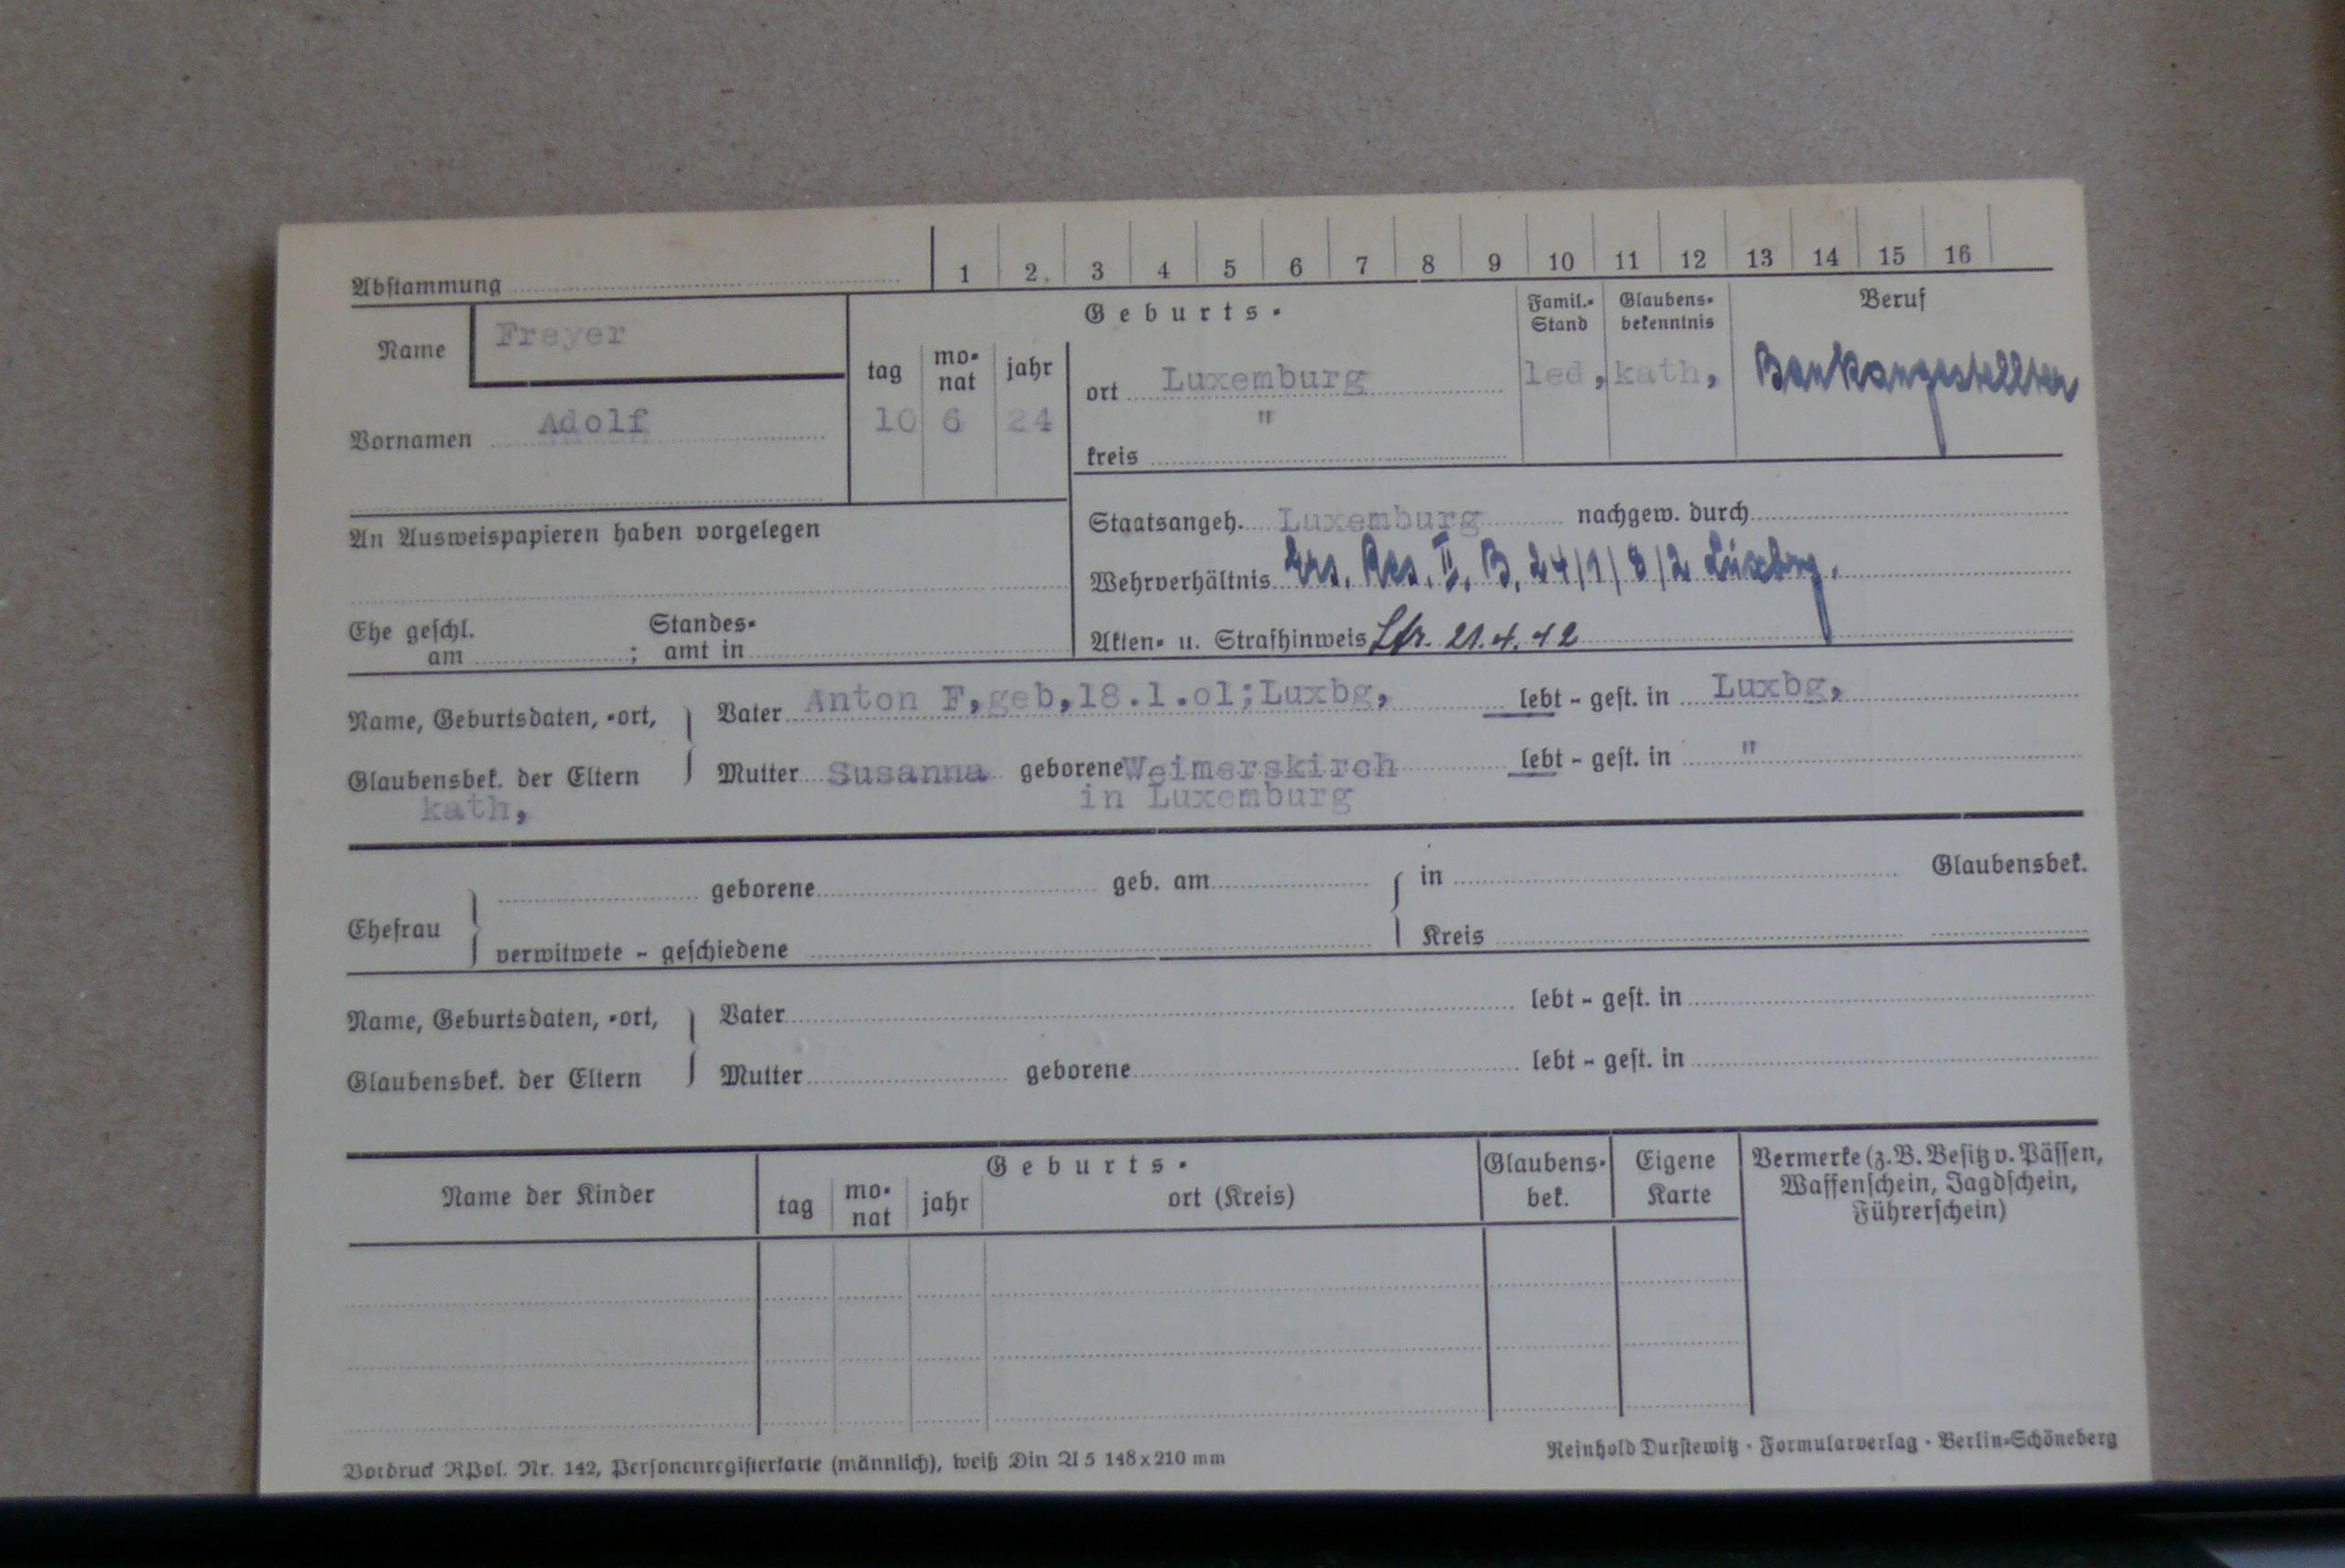 Abstammung 1 2. 3 4 5 6 7 8 9 10 11 12 13 14 15 16
Name Freyer
Vornamen Adolf
Geburts-
tag monat jahr
10 6 24
ort Luxemburg
kreis "
Famil.-Stand
led,
Glaubens-bekenntnis
kath,
Beruf
Bankangestellter
An Ausweispapieren haben vorgelegen
Staatsangeh. Luxemburg nachgew. durch
Wehrverhältnis Ers. Res. II, B, 24/1/8/2 Luxbrg.
Ehe geschl. am ; Standes-amt in
Akten- u. Strafhinweis 21.4.42
Name, Geburtsdaten, -ort, Vater Anton F,geb,18.1.o1;Luxbg, lebt - gest. in Luxbg,
Glaubensbek. der Eltern Mutter Susanna geborene Weimerskirch lebt - gest. in "
kath, in Luxemburg
geborene geb. am in Glaubensbek.
Ehefrau
verwitwete - geschiedene Kreis
Name, Geburtsdaten, -ort, Vater lebt - gest. in
Glaubensbek. der Eltern Mutter geborene lebt - gest. in
Name der Kinder
Geburts-
tag monat jahr ort (Kreis)
Glaubens-bek.
Eigene Karte
Vermerke (z. B. Besitz v. Pässen,
Waffenschein, Jagdschein,
Führerschein)
Vordruck RPol. Nr. 142, Personenregisterkarte (männlich), weiß Din A 5 148 x 210 mm
Reinhold Durstewitz · Formularverlag · Berlin-Schöneberg